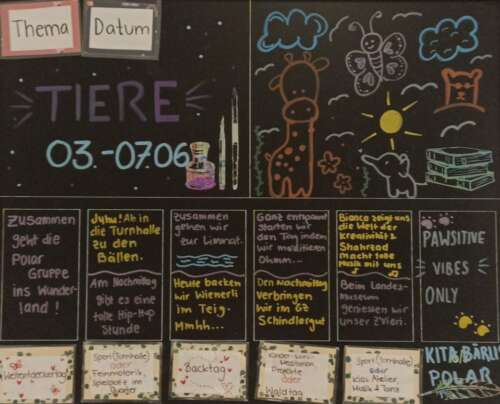 Thema
Datum
TIERE
03.-07.06
Zusammen
geht die
Polar
Gruppe
ins Wunder-
land!
Juhu! Ab in
die Turnhalle
zu den
Bällen.
Am Nachmittag
gibt es eine
tolle Hip-Hop
Stunde
Zusammen
gehen wir
zur Limmat.
Heute backen
wir Wienerli
im Teig.
Mmhh...
Ganz entspannt
starten wir
den Tag indem
wir meditieren
Ohmm...
Den Nachmittag
Verbringen
wir im GZ
Schindlergut
Bianca zeigt uns
die Welt der
kreativität &
Shahrzad
macht tolle
Musik mit uns
Beim Landes-
Museum
geniessen wir
unser Zvieri.
PAWSITIVE
VIBES
ONLY
Weltentdeckertag
Sport (Turnhalle)
oder
Feinmotorik,
Spielpost im
Backtag
Meditation
Projekte
oder
Waldtag
Sport (Turnhalle)
oder
Kita Atelier,
Musik & Tanz
KITA BÄRLI
POLAR